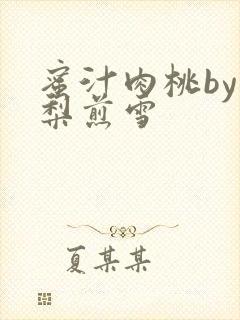 蜜汁肉桃by
梨煎雪
夏某某